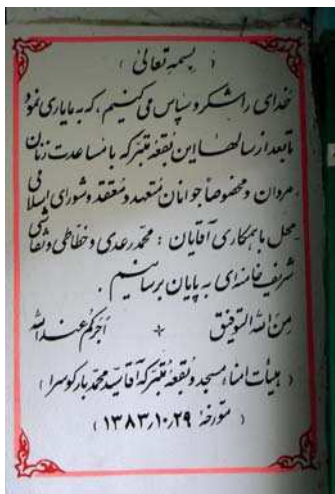 ( بسمه تعالی )
خدای را شکر و سپاس می کنیم ، که به ما یاری نمود
تا بعد از سالها این بقعه متبرکه با مساعدت زنان
، مردان و مخصوصاً جوانان متعهد و معتقد و شورای اسلامی
محل با همکاری آقایان : محمد رعدی و خطاطی و نقاشی
شریف خامنه ای به پایان برسانیم .
من الله التوفیق * اجرکم عند الله
( هیئات امناء مسجد و بقعه متبرکه آقا سید محمد بارکوسرا )
( مورخه ۱۳۸۳٫۱۰٫۲۹ )